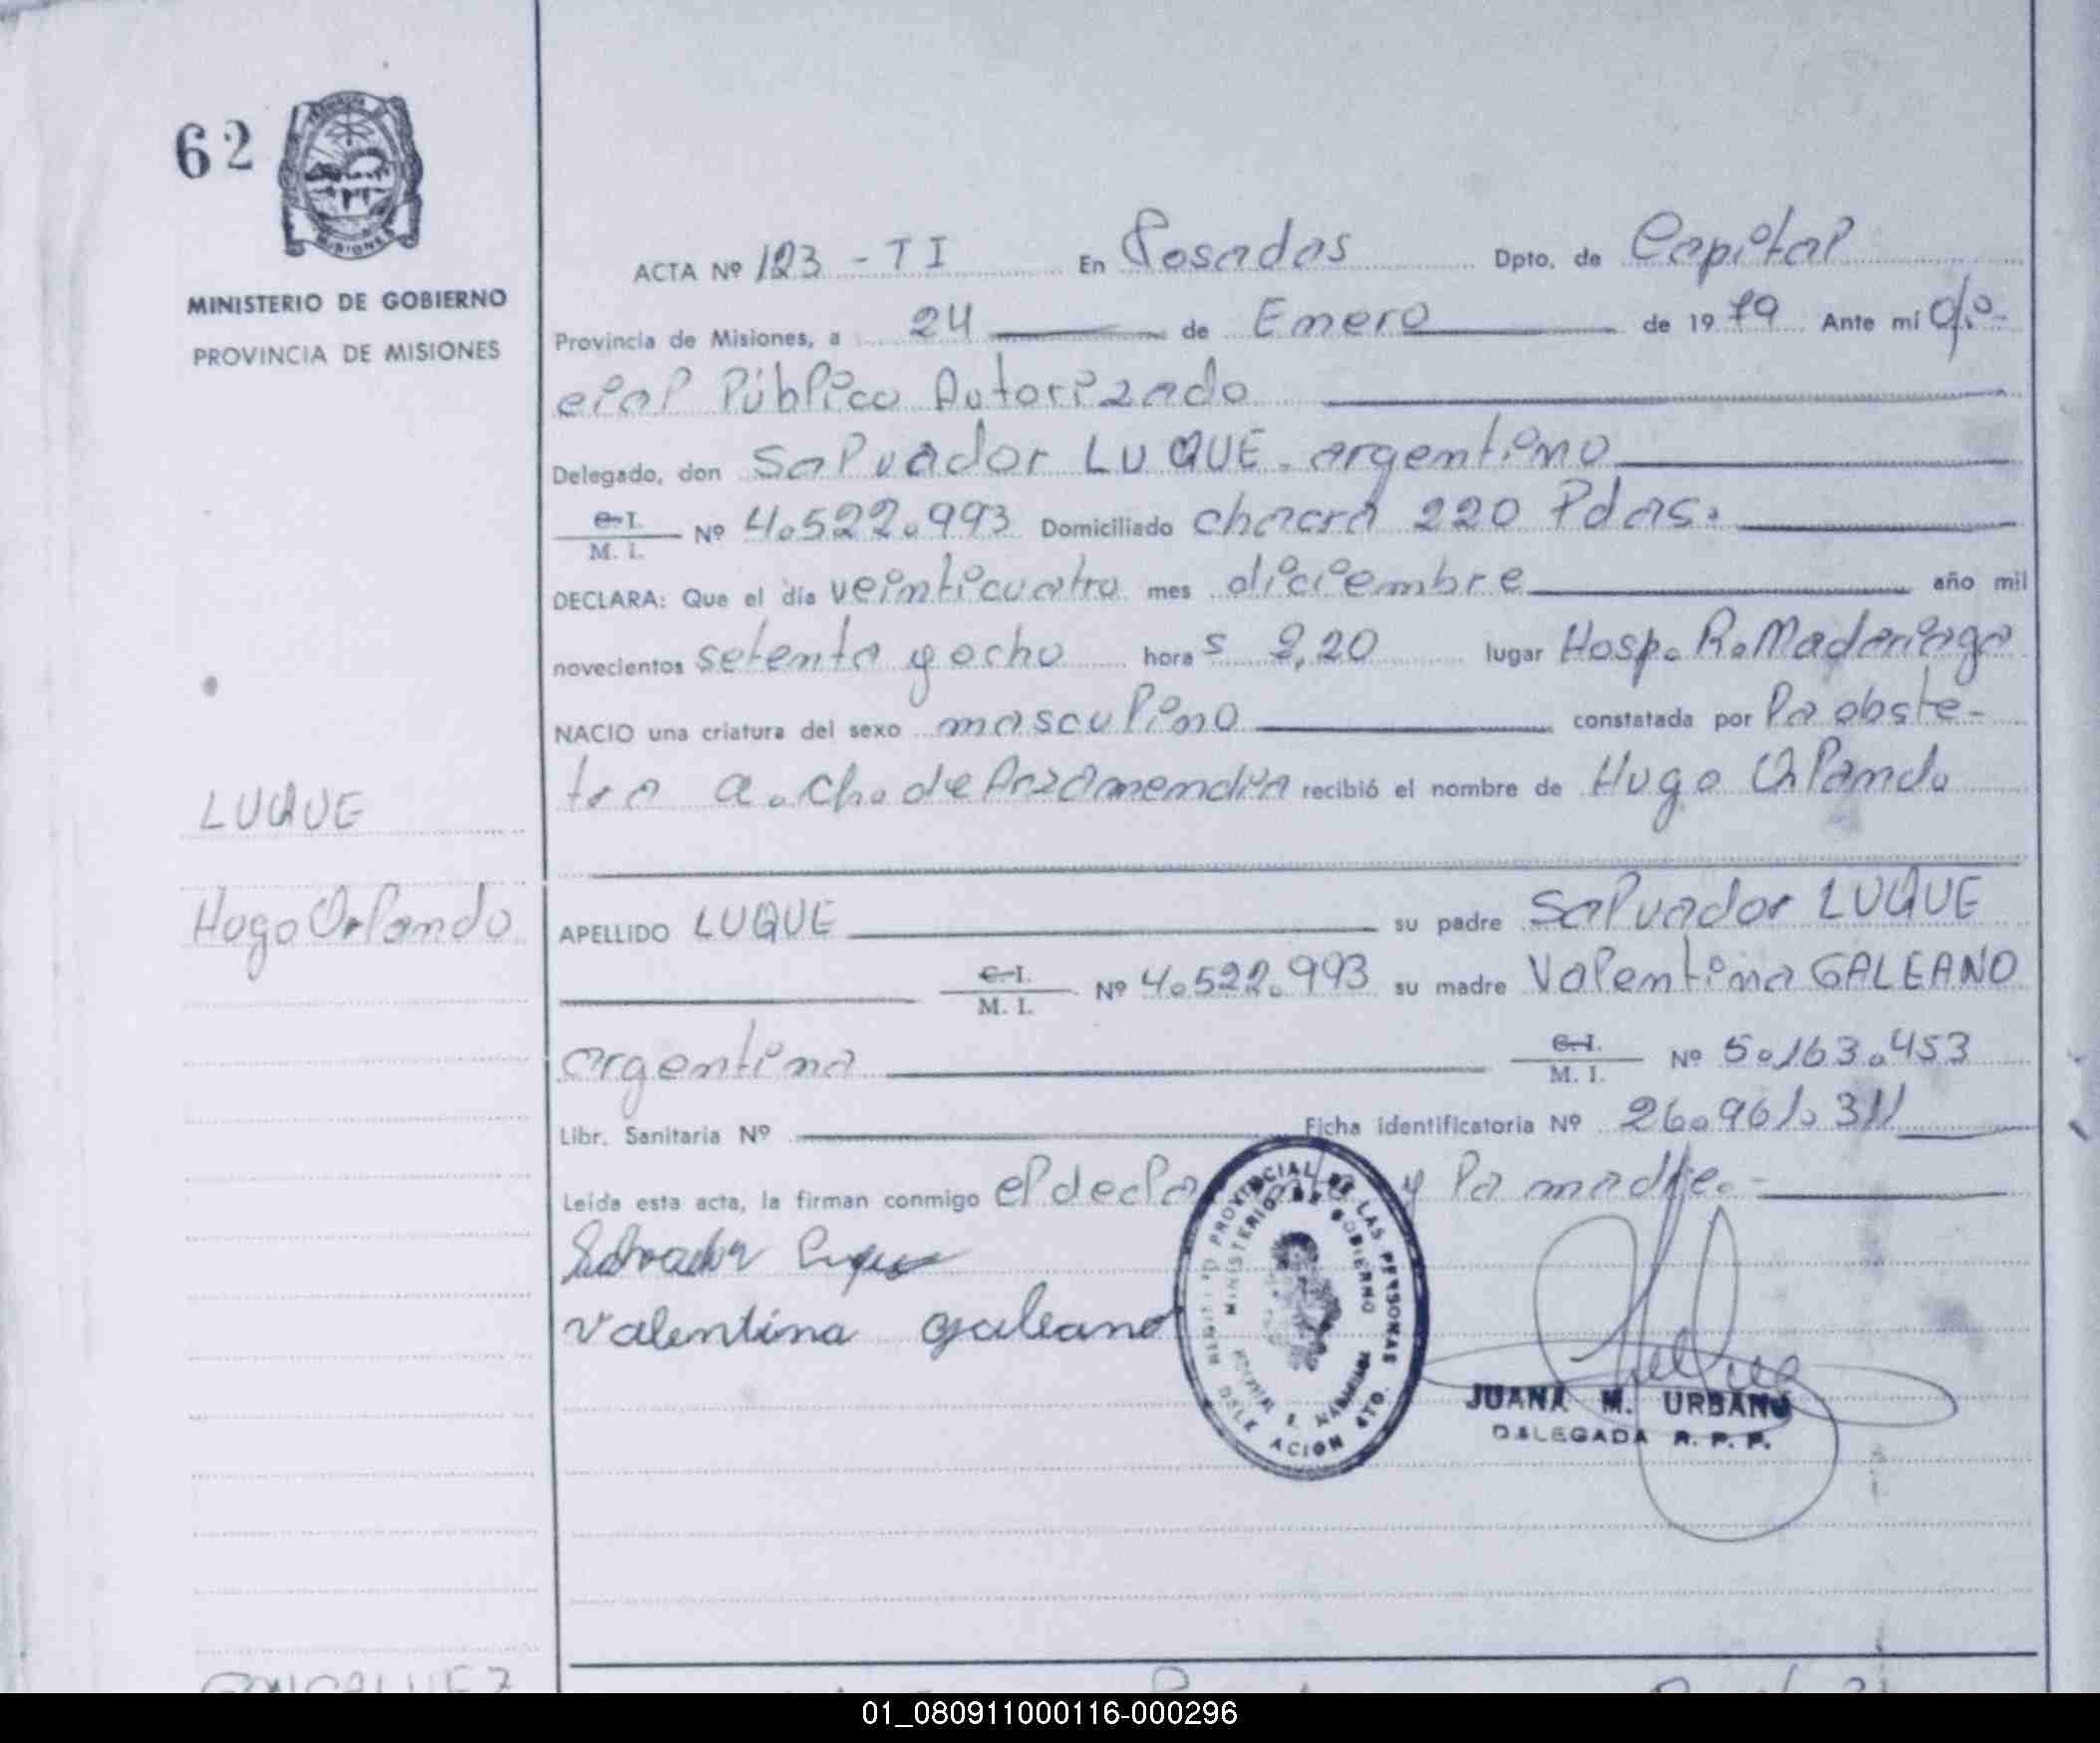 62
MINISTERIO DE GOBIERNO
PROVINCIA DE MISIONES
ACTA Nº 123 - TI En Posadas Dpto. de Capital
Provincia de Misiones, a 24 de Enero de 1979 Ante mí Ofi-
cial Público Autorizado
Delegado, don Salvador LUQUE. argentino
C.I. / M. I. Nº 4.522.993 Domiciliado chacra 220 Pdas.
DECLARA: Que el día veinticuatro mes diciembre año mil
novecientos setenta y ocho hora s 2,20 lugar Hosp. R. Madariaga
NACIO una criatura del sexo masculino constatada por la obste-
tra a. Ch. de Arizamendia recibió el nombre de Hugo Orlando
LUQUE
Hugo Orlando
APELLIDO LUQUE su padre Salvador LUQUE
C.I. / M. I. Nº 4.522.993 su madre Valentina GALEANO
argentina C.I. / M. I. Nº 5.163.453
Libr. Sanitaria Nº Ficha identificatoria Nº 26.961.311
Leída esta acta, la firman conmigo el decla y la madre.-
Salvador Luque
Valentina galeano
PROVINCIAL DE LAS PERSONAS
MINISTERIO DE GOBIERNO
DELE ACION 4TO.
JUANA M. URBANO
DELEGADA R. P. P.
01_080911000116-000296